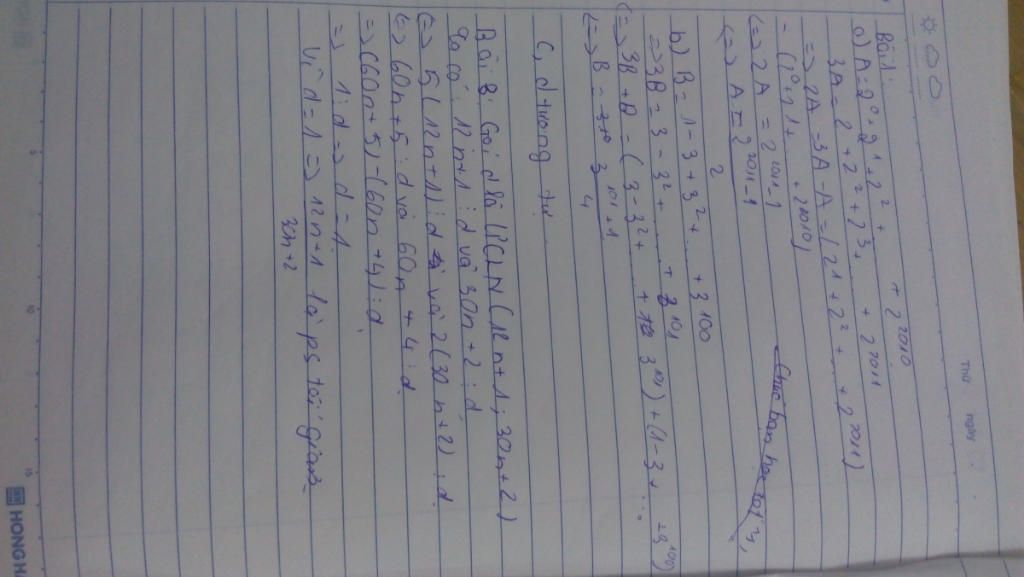 Thứ ngày
Bài 1:
a) A = 2^0 + 2^1 + 2^2 + + 2^2010
3A = 2 + 2^2 + 2^3 + + 2^2011
=> 2A = 3A - A = (21 + 2^2 + + 2^2011)
- (2^0 + 2 1 + + 2^2010)
(=> 2A = 2^2011 - 1
(=> A = 2^2011 - 1
2
b) B = 1 - 3 + 3^2 + ... + 3^100
=> 3B = 3 - 3^2 + ... + 3^101
(=> 3B + B = (3 - 3^2 + ... + 3^101) + (1 - 3 + ... + 3^100)
(=> B = 3^101 + 1
4
C, d tương tự
Bài 8: Gọi d là ƯCLN (12n + 1; 30n + 2)
ta có: 12n + 1 ⋮ d và 30n + 2 ⋮ d
(=> 5(12n + 1) ⋮ d và 2(30n + 2) ⋮ d
(=> 60n + 5 ⋮ d và 60n + 4 ⋮ d
=> (60n + 5) - (60n + 4) ⋮ d
=> 1 ⋮ d => d = 1
Vì d = 1 => 12n + 1 là ps tối giản
30n + 2
5
10
15
HONG H